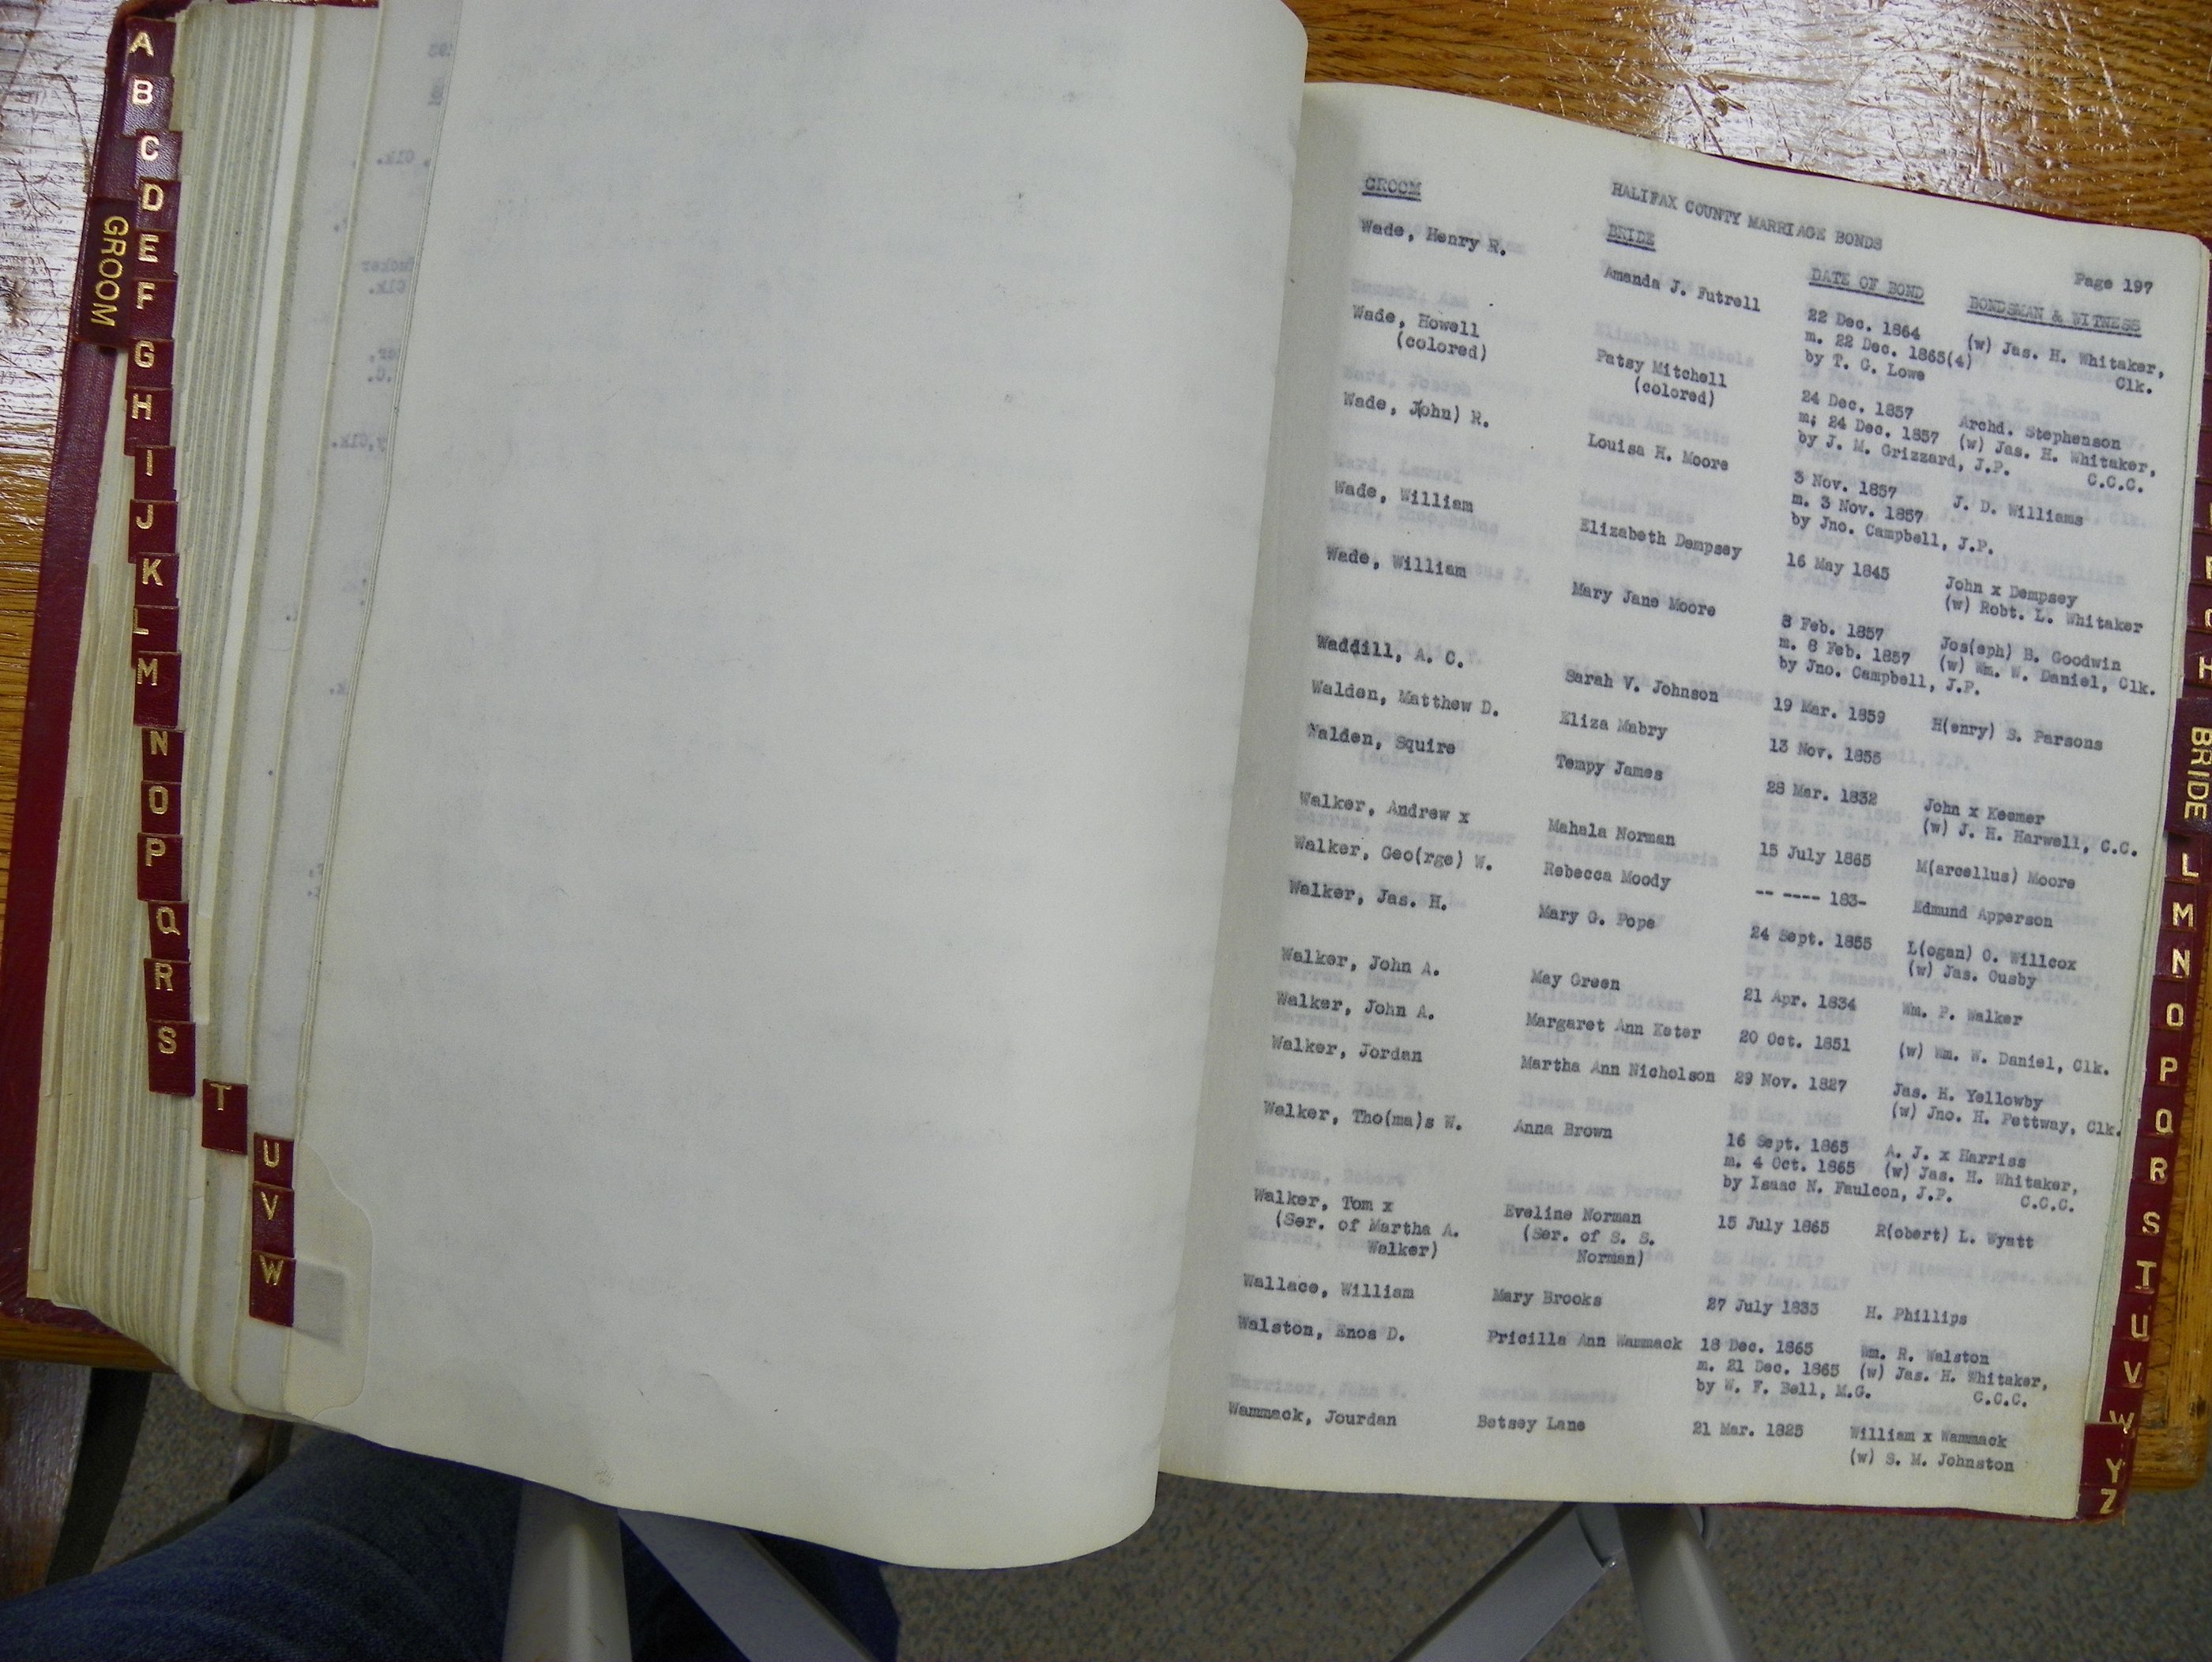 A
B
C
D
E
F
G
H
I
J
K
L
M
N
O
P
Q
R
S
T
U
V
W
GROOM
HALIFAX COUNTY MARRIAGE BONDS
Page 197
GROOM BRIDE DATE OF BOND BONDSMAN & WITNESS
Wade, Henry R. Amanda J. Futrell 22 Dec. 1864 (w) Jas. H. Whitaker,
m. 22 Dec. 1865(4) Clk.
by T. G. Lowe
Wade, Howell Patsy Mitchell 24 Dec. 1857 Archd. Stephenson
(colored) (colored) m; 24 Dec. 1857 (w) Jas. H. Whitaker,
by J. M. Grizzard, J.P. C.C.C.
Wade, J(ohn) R. Louisa H. Moore 3 Nov. 1857 J. D. Williams
m. 3 Nov. 1857
by Jno. Campbell, J.P.
Wade, William Elizabeth Dempsey 16 May 1845 John x Dempsey
(w) Robt. L. Whitaker
Wade, William Mary Jane Moore 8 Feb. 1857 Jos(eph) B. Goodwin
m. 8 Feb. 1857 (w) Wm. W. Daniel, Clk.
by Jno. Campbell, J.P.
Waddill, A. C. Sarah V. Johnson 19 Mar. 1859 H(enry) S. Parsons
Walden, Matthew D. Eliza Mabry 13 Nov. 1855
Walden, Squire Tempy James 28 Mar. 1832 John x Keemer
(w) J. H. Harwell, C.C.
Walker, Andrew x Mahala Norman 15 July 1865 M(arcellus) Moore
Walker, Geo(rge) W. Rebecca Moody -- ---- 183- Edmund Apperson
Walker, Jas. H. Mary G. Pope 24 Sept. 1855 L(ogan) O. Willcox
(w) Jas. Ousby
Walker, John A. May Green 21 Apr. 1834 Wm. P. Walker
Walker, John A. Margaret Ann Keter 20 Oct. 1851 (w) Wm. W. Daniel, Clk.
Walker, Jordan Martha Ann Nicholson 29 Nov. 1827 Jas. H. Yellowby
(w) Jno. H. Pettway, Clk.
Walker, Tho(ma)s W. Anna Brown 16 Sept. 1865 A. J. x Harriss
m. 4 Oct. 1865 (w) Jas. H. Whitaker,
by Isaac N. Faulcon, J.P. C.C.C.
Walker, Tom x Eveline Norman 15 July 1865 R(obert) L. Wyatt
(Ser. of Martha A. (Ser. of S. S.
Walker) Norman)
Wallace, William Mary Brooks 27 July 1833 H. Phillips
Walston, Enos D. Pricilla Ann Wammack 18 Dec. 1865 Wm. R. Walston
m. 21 Dec. 1865 (w) Jas. H. Whitaker,
by W. F. Bell, M.G. C.C.C.
Wammack, Jourdan Betsey Lane 21 Mar. 1825 William x Wammack
(w) S. M. Johnston
H
BRIDE
L
M
N
O
P
Q
R
S
T
U
V
W
Y
Z